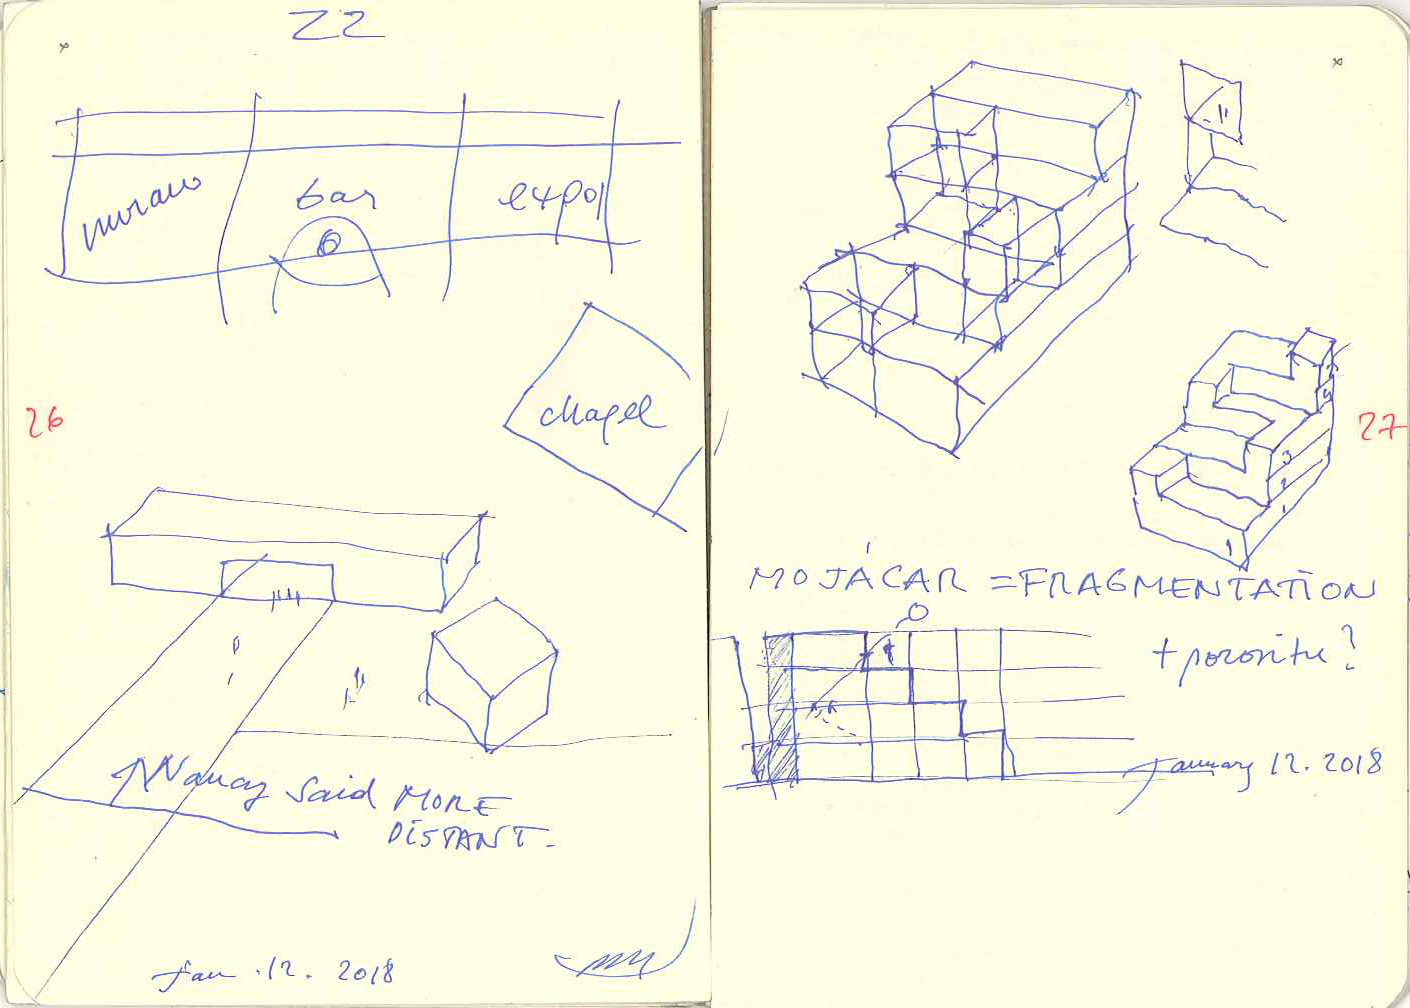 22
murano
bar
expo
chapel
26
Nancy said MORE
DISTANT.
Jan. 12. 2018
27
3
2
1
1
MOJÁCAR = FRAGMENTATION
+ porosity?
January 12. 2018